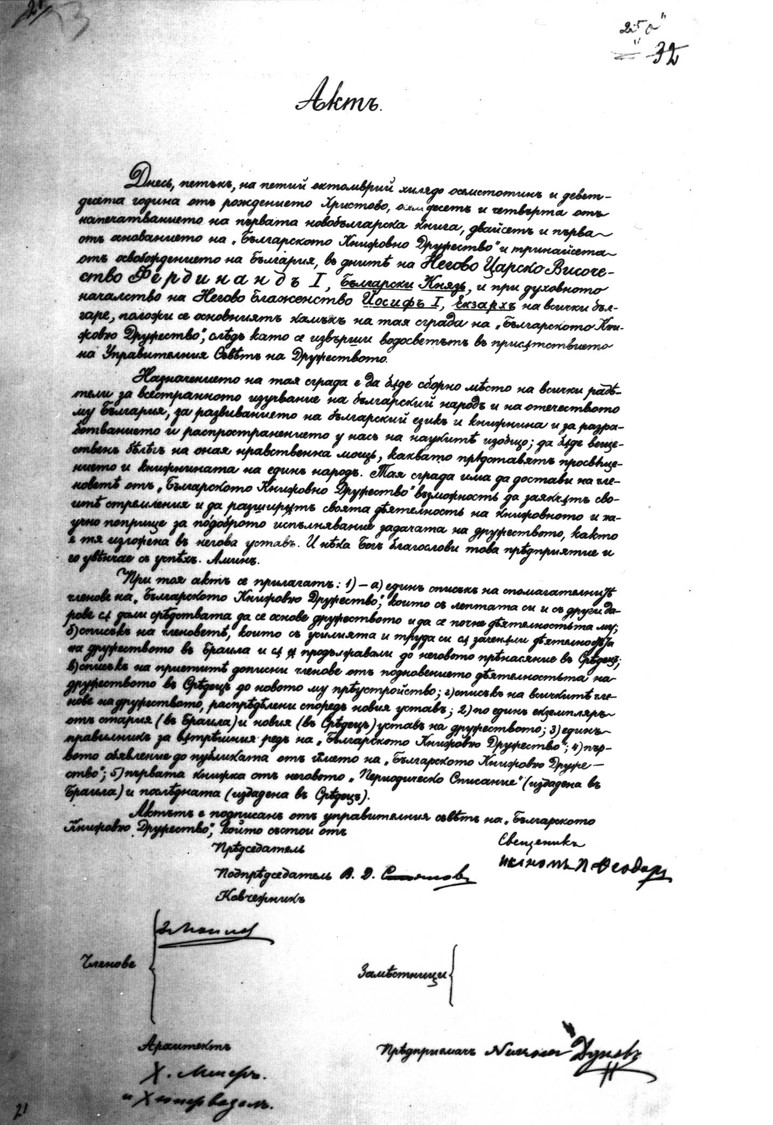 32
Актъ.
Днесь, петъкъ, на петий октомврий хилядо осмстотин и девет-
десета година отъ рождението Христово, осмдесетъ и четвърта отъ
напечатванието на първата новобългарска книга, двайсетъ и първа
отъ основанието на „Българското Книжовно Дружество“ и тринайсета
отъ освобождението на България, въ днитѣ на Негово Царско-Височе-
ство Фердинандъ I, Български Князъ, и при духовното
началство на Негово Блаженство Иосифъ I, Екзархъ на всички бъл-
гаре, положи се основниятъ камъкъ на тая сграда на „Българското Кни-
жовно Дружество“, слѣдъ като се извърши водосветътъ въ присѫтствието
на Управителния Съвѣтъ на Дружеството.
Назначението на тая сграда е да бѫде сборно мѣсто на всички радѣ-
тели за всестранното изучвание на българский народъ и на отечеството
му България, за развиванието на българский езикъ и книжнина и за разра-
ботванието и распространението у насъ на наукитѣ изобщо; да бѫде веще-
ственъ бѣлѣгъ на оная нравственна мощь, каквато прѣдставятъ просвѣще-
нието и книжнината на единъ народъ. Тая сграда има да достави на чле-
новетѣ отъ „Българското Книжовно Дружество“ возможность да заякчѫтъ сво-
итѣ стремления и да разширѫтъ своята дѣятелность на книжовното и на-
учно поприще за подоброто испълнявание задачата на дружеството, както
е тя изложена въ негова уставъ. И нѣка Богъ благослови това прѣдприятие и
го увѣнчае съ успѣхъ. Аминъ.
При тоя актъ се прилагатъ: 1) – а) единъ списъкъ на спомагателнитѣ
членове на „Българското Книжовно Дружество“, които съ лептата си и съ други да-
рове сѫ дали срѣдствата да се основе дружеството и да се почне дѣятелностьта му;
б) списъкъ на членоветѣ, които съ усилията и труда си сѫ зачепили дѣятелностьта
на дружеството въ Браила и сѫ я продължавали до неговото прѣнасяние въ Срѣдецъ;
в) списъкъ на приетитѣ дописни членове отъ подновението дѣятелностьта на
дружеството въ Срѣдецъ до новото му прѣустройство; г) списъкъ на всичкитѣ чле-
нове на дружеството, распрѣдѣлени споредъ новия уставъ; 2) по единъ екземпляръ
отъ стария (въ Браила) и новия (въ Срѣдецъ) уставъ на дружеството; 3) единъ
правилникъ за вѫтрѣшния редъ на „Българското Книжовно Дружество“; 4) пър-
вото обявление до публиката отъ името на „Българското Книжовно Друже-
ство“; 5) първата книжка отъ неговото „Периодическо Списание“ (издадена въ
Браила) и послѣдната (издадена въ Срѣдецъ).
Актътъ е подписанъ отъ управителния съвѣтъ на „Българското
Книжовно Дружество“, който състои отъ
Прѣдседатель
Свещеникъ
Икономъ П. Теодор
Подпрѣдседатель В. Д. Стоянов
Ковчежникъ
Членове
Замѣстници
Архитектъ
Х. Маиеръ.
Прѣдприемачъ Никола Дунов
21